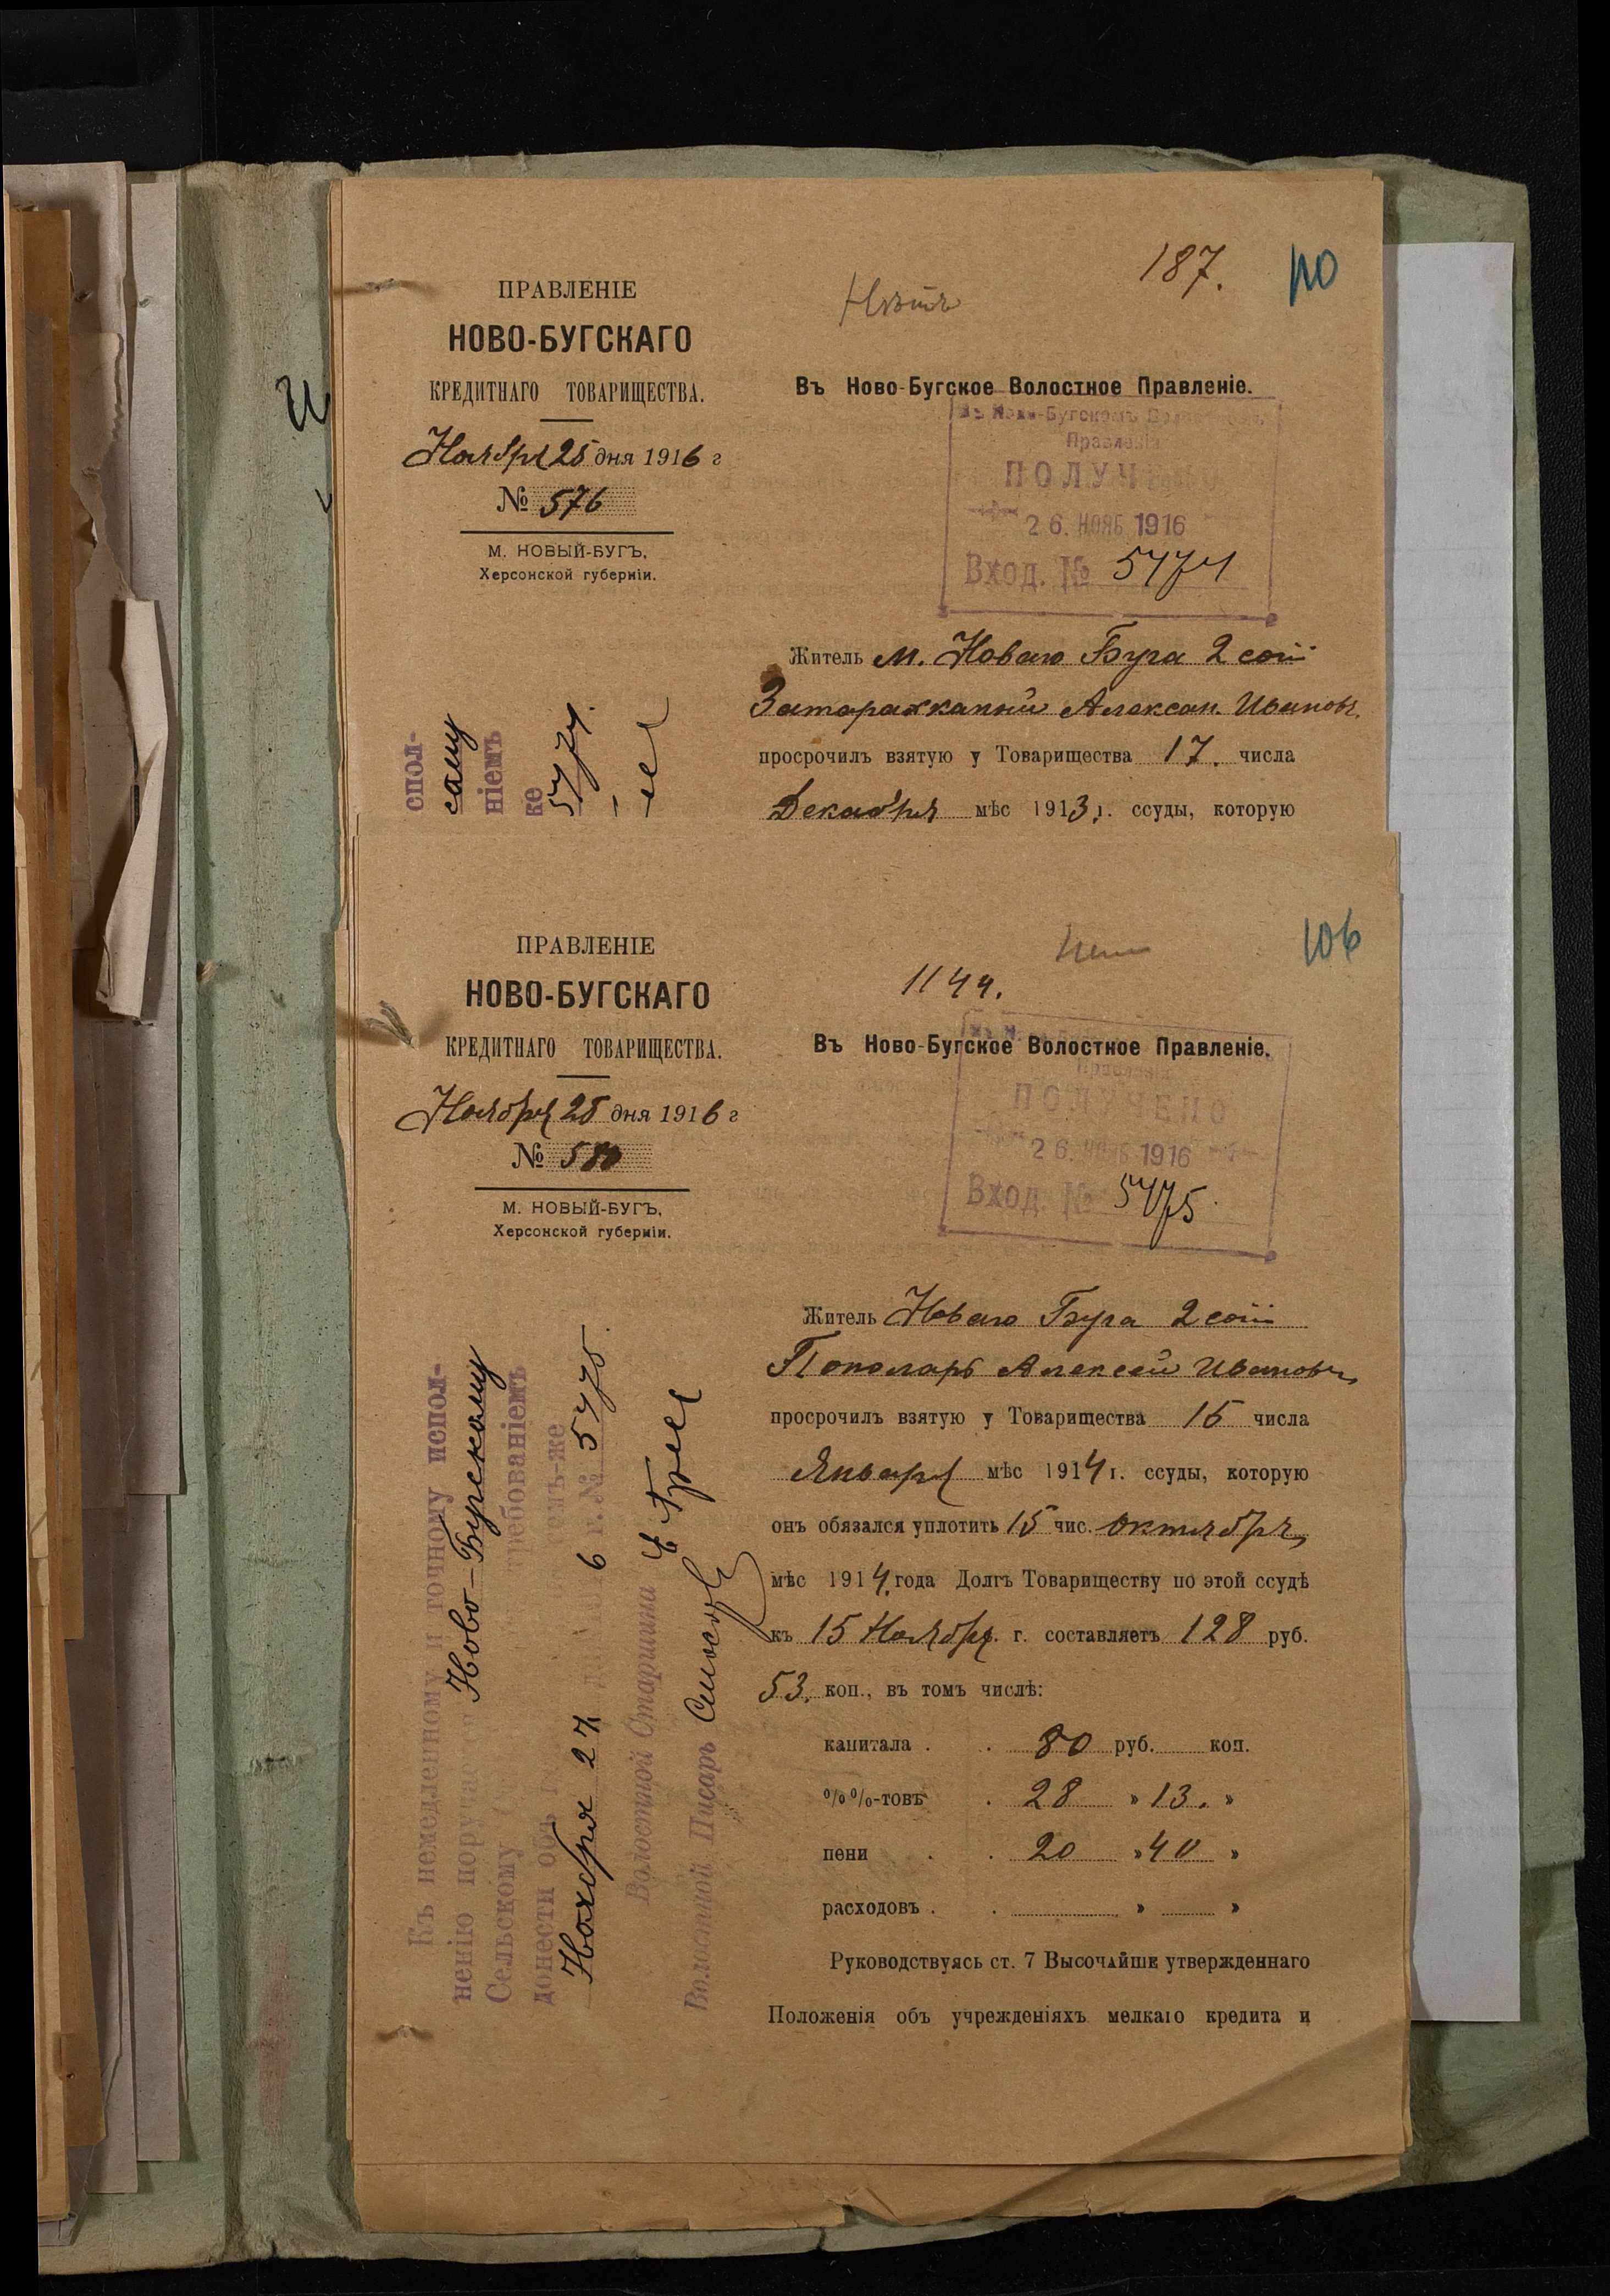 187.
110
Нѣтъ
ПРАВЛЕНІЕ
НОВО-БУГСКАГО
КРЕДИТНАГО ТОВАРИЩЕСТВА.
Въ Ново-Бугское Волостное Правленіе.
Ноября 25 дня 1916 г
№ 576
М. НОВЫЙ-БУГЪ,
Херсонской губерніи.
Въ Ново-Бугскомъ Волостномъ
Правленіи
ПОЛУЧЕНО
26. НОЯБ 1916
Вход. № 5474
Житель м. Новаго Буга 2 сот
Александ. Ивановъ
просрочилъ взятую у Товарищества 17. числа
Декабря мѣс 1913 г. ссуды, которую
спол-
скому
ніемъ
же
5474.
106
1144.
ПРАВЛЕНІЕ
НОВО-БУГСКАГО
КРЕДИТНАГО ТОВАРИЩЕСТВА.
Въ Ново-Бугское Волостное Правленіе.
Ноября 25 дня 1916 г
№ 580
М. НОВЫЙ-БУГЪ,
Херсонской губерніи.
Правленіи
ПОЛУЧЕНО
26. НОЯБ 1916
Вход. № 5475.
Житель Новаго Буга 2 сот
Алексей Ивановъ
просрочилъ взятую у Товарищества 15 числа
Января мѣс 1914 г. ссуды, которую
онъ обязался уплотить 15 чис. Октября
мѣс 1914. года Долгъ Товариществу по этой ссудѣ
къ 15 Ноября. г. составляетъ 128 руб.
53. коп., въ томъ числѣ:
капитала . . 80 руб. коп.
%%-товъ . 28 » 13. »
пени . . 20 » 40 »
расходовъ . . » »
Руководствуясь ст. 7 Высочайше утвержденнаго
Положенія объ учрежденіяхъ мелкаго кредита и
Къ немедленному и точному испол-
ненію поруча Ново-Бугскому
Сельскому требованіемъ
донести объ семъ-же
Ноября 27 дня 6 г. № 5475.
Волостной Старшина
Волостной Писарь